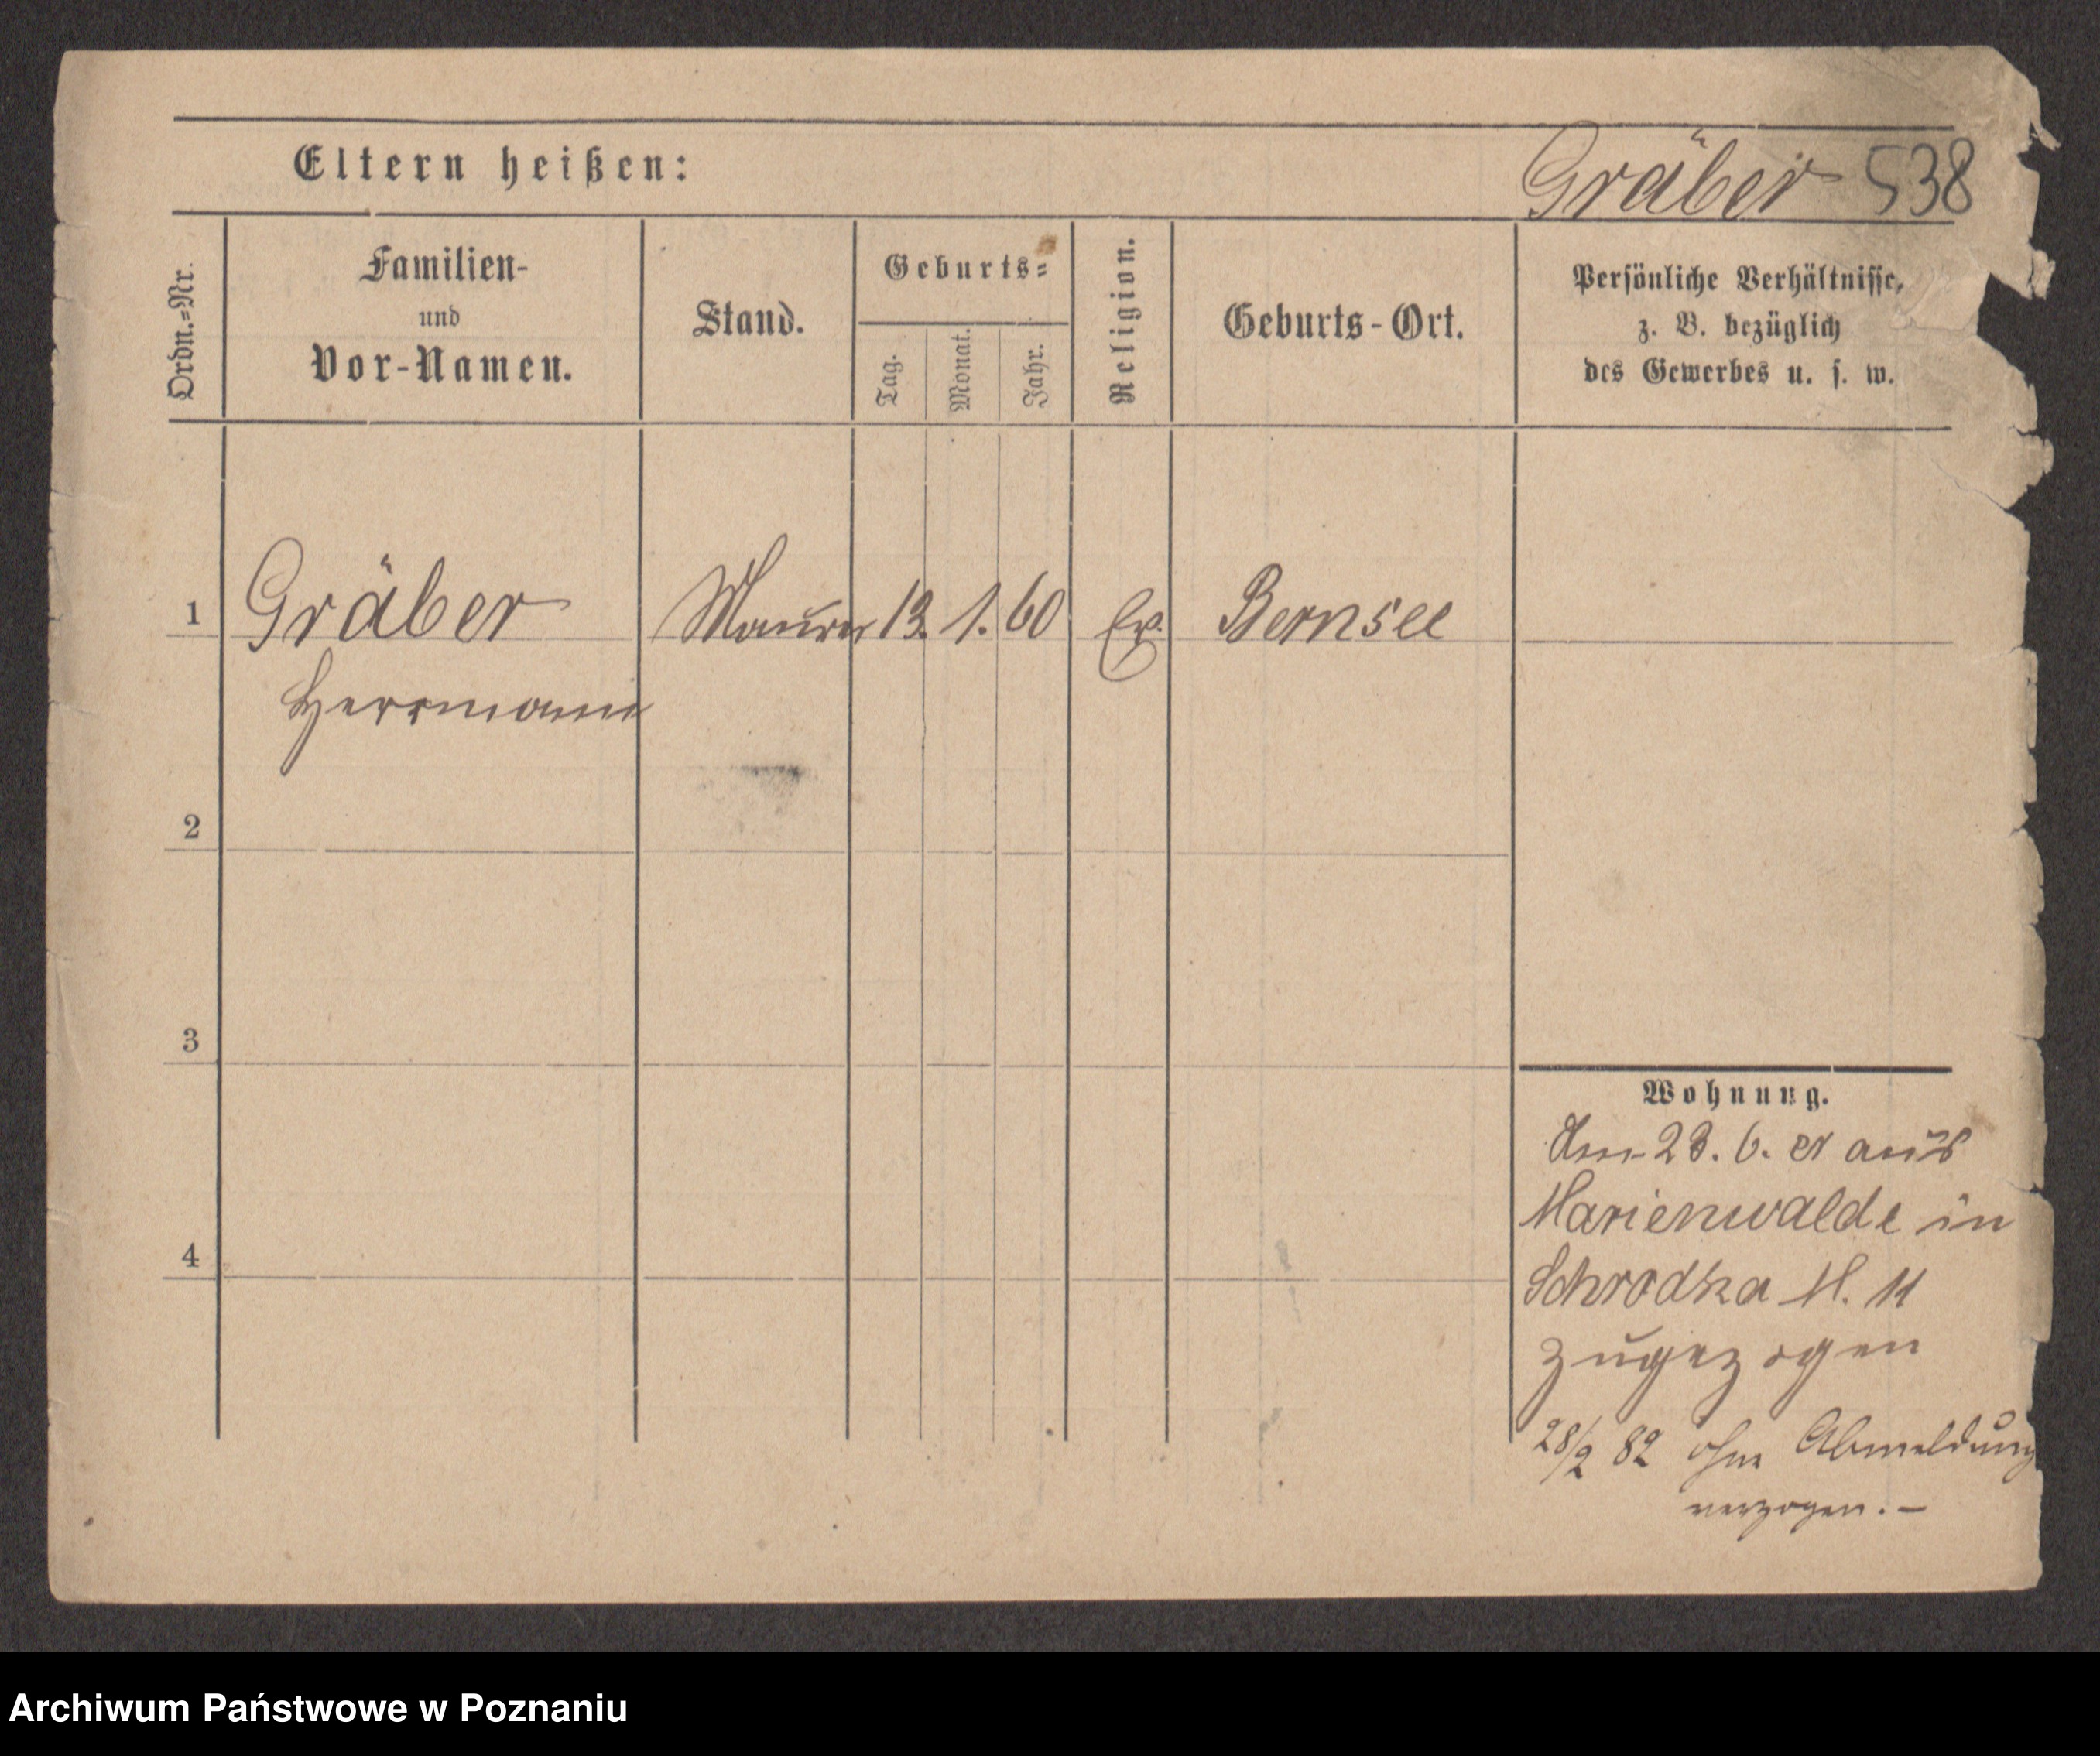 Eltern heißen:
Gräber 538
Ordn.=Nr.
Familien-
und
Vor-Namen.
Stand.
Geburts=
Tag.
Monat.
Jahr.
Religion.
Geburts-Ort.
Persönliche Verhältnisse,
z. B. bezüglich
des Gewerbes u. s. w.
1 Gräber Maurer 13. 1. 60 Ev. Bernsee
Herrmann
2
3
4
Wohnung.
Am 28. 6. er aus
Marienwalde in
Schrodka N. 11
zugezogen
28/2 82 ohne Abmeldung
verzogen. —
Archiwum Państwowe w Poznaniu